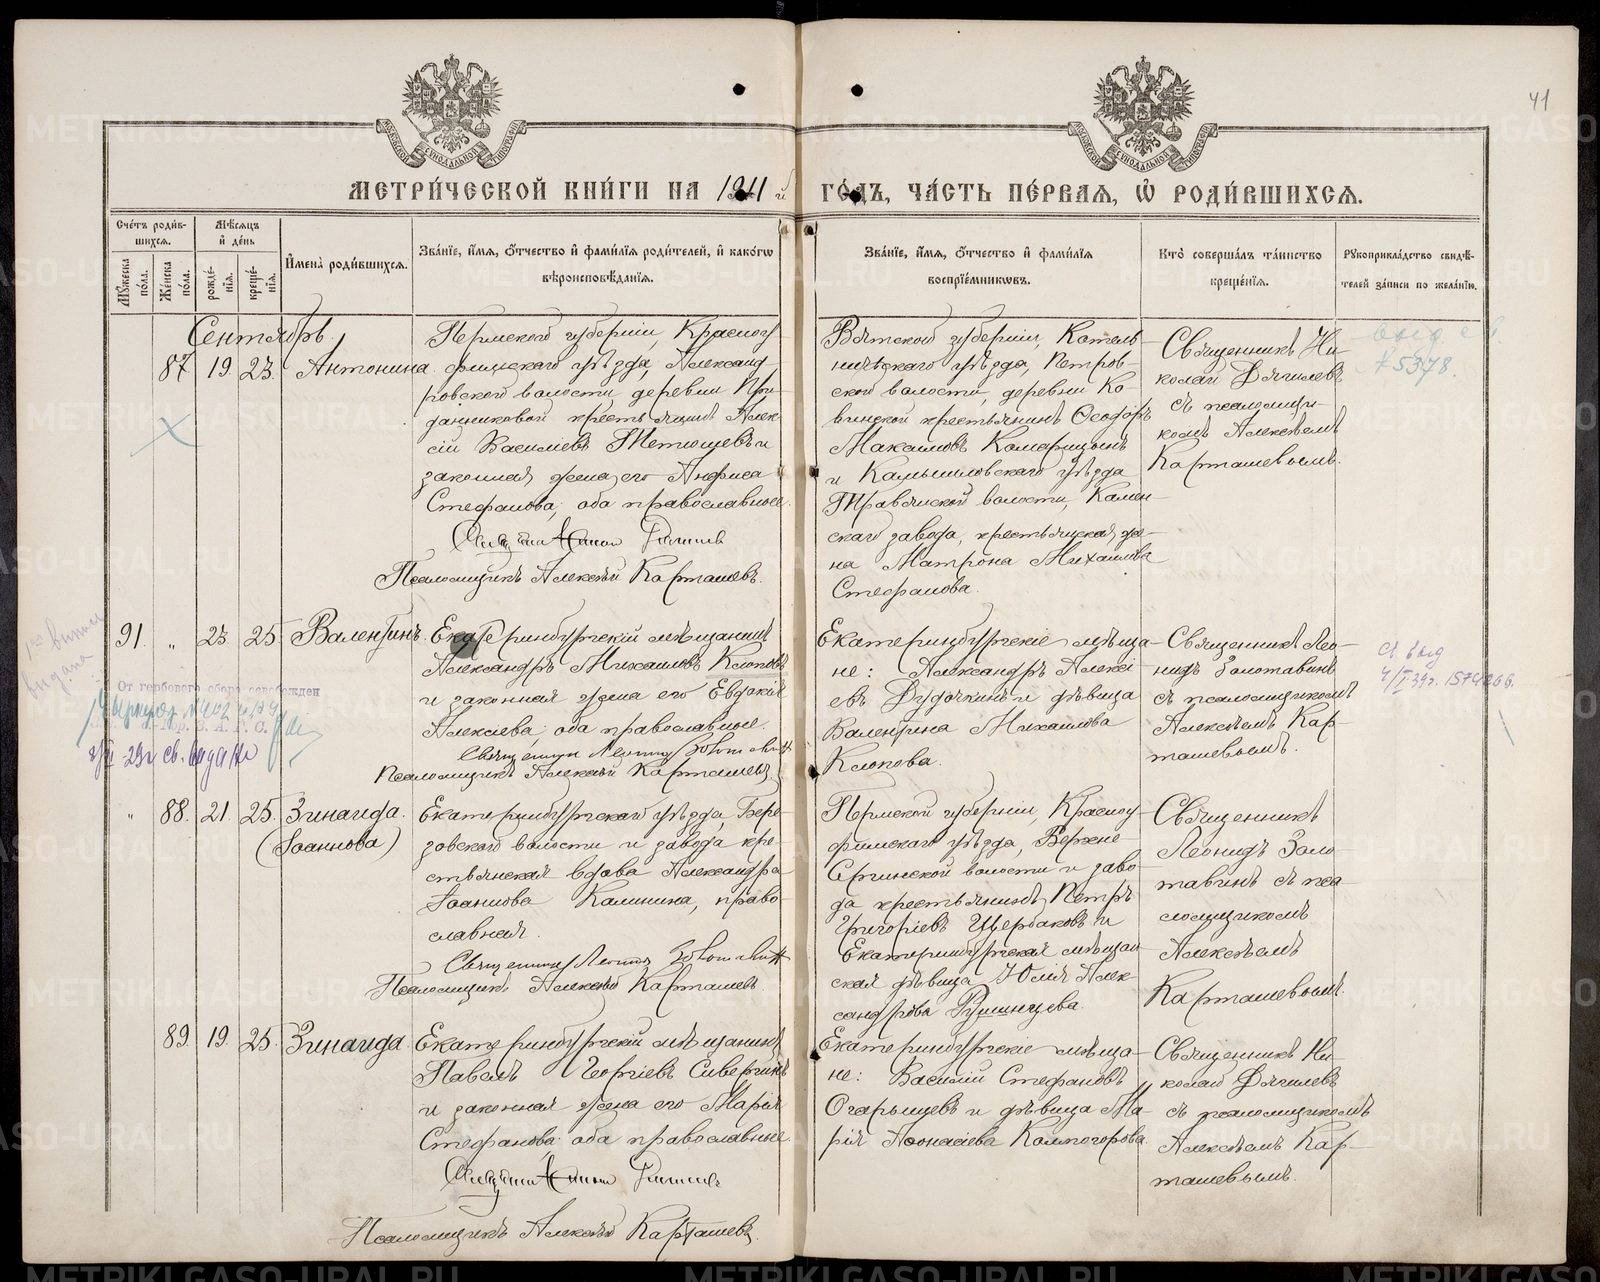 41
МЕТРИ́ЧЕСКОЙ КНИ́ГИ НА 1911 й ГО́ДЪ, ЧА́СТЬ ПЕ́РВАЯ, Ѡ҆ РОДИ́ВШИХСЯ.
Сче́тъ роди́в-
шихся.
Мѣ́сяцъ
и҆ де́нь
Мꙋ́жеска
по́ла.
Же́нска
по́ла.
рожде́-
нїя.
креще́-
нїя.
И҆мена̀ роди́вшихся.
Зва́нїе, и҆́мя, ѻ҆́тчество и҆ фами́лїя роди́телей, и҆ како́гѡ
вѣроисповѣ́данїя.
Зва́нїе, и҆́мя, ѻ҆́тчество и҆ фами́лїя
воспрїе́мникѡвъ.
Кто̀ соверша́лъ та́инство
креще́нїя.
Рꙋкоприкла́дство свидѣ́-
телей за́писи по жела́нїю.
Сентябрь.
87 19. 23. Антонина.
Пермской губерніи, Красноу-
фимскаго уѣзда, Александ-
ровской волости, деревни При-
данниковой крестьянинъ Алек-
сій Василіевъ Тетюшевъ и
законная жена его Анфиса
Стефанова, оба православные.
Священникъ Николай Дягилевъ
Псаломщикъ Алексѣй Карташевъ.
Вятской губерніи, Котель-
ничскаго уѣзда, Петров-
ской волости, деревни Ко-
винской крестьянинъ Ѳеодоръ
Максимовъ Комарицынъ
и Камышловскаго уѣзда
Травянской волости, Камен-
скаго завода, крестьянская же-
на Матрона Михаилова
Стефанова.
Священникъ Ни-
колай Дягилевъ
съ псаломщи-
комъ Алексѣемъ
Карташевымъ.
№5378.
91. „ 23 25 Валентинъ.
Екатеринбургскій мѣщанинъ
Александръ Михаиловъ Клоповъ
и законная жена его Евдокія
Алексіева, оба православные.
Священникъ Леонидъ Золотавинъ
Псаломщикъ Алексѣй Карташевъ.
Екатеринбургскіе мѣща-
не: Александръ Алексі-
евъ Дудочкинъ и дѣвица
Валентина Михаилова
Клопова.
Священникъ Лео-
нидъ Золотавинъ
съ псаломщикомъ
Алексѣемъ Кар-
ташевымъ.
выдана
От гербового сбора освобожден
„ 88. 21. 25. Зинаида.
(Іоаннова)
Екатеринбургскаго уѣзда, Бере-
зовской волости и завода кре-
стьянская вдова Александра
Іоаннова Калинина, право-
славная.
Священникъ Леонидъ Золотавинъ
Псаломщикъ Алексѣй Карташевъ.
Пермской губерніи, Красноу-
фимскаго уѣзда, Верхне-
Сергинской волости и заво-
да крестьянинъ Петръ
Григоріевъ Щербаковъ и
Екатеринбургская мѣщан-
ская дѣвица Юлія Алек-
сандрова Румянцева.
Священникъ
Леонидъ Золо-
тавинъ съ пса-
ломщикомъ
Алексѣемъ
Карташевымъ.
89. 19. 25. Зинаида.
Екатеринбургскій мѣщанинъ
Павелъ Георгіевъ Сивергинъ
и законная жена его Марія
Стефанова, оба православные.
Священникъ Николай Дягилевъ
Псаломщикъ Алексѣй Карташевъ.
Екатеринбургскіе мѣща-
не: Василій Стефановъ
Огарышевъ и дѣвица Ма-
рія Аѳонасіева Колмогорова.
Священникъ Ни-
колай Дягилевъ
съ псаломщикомъ
Алексѣемъ Кар-
ташевымъ.